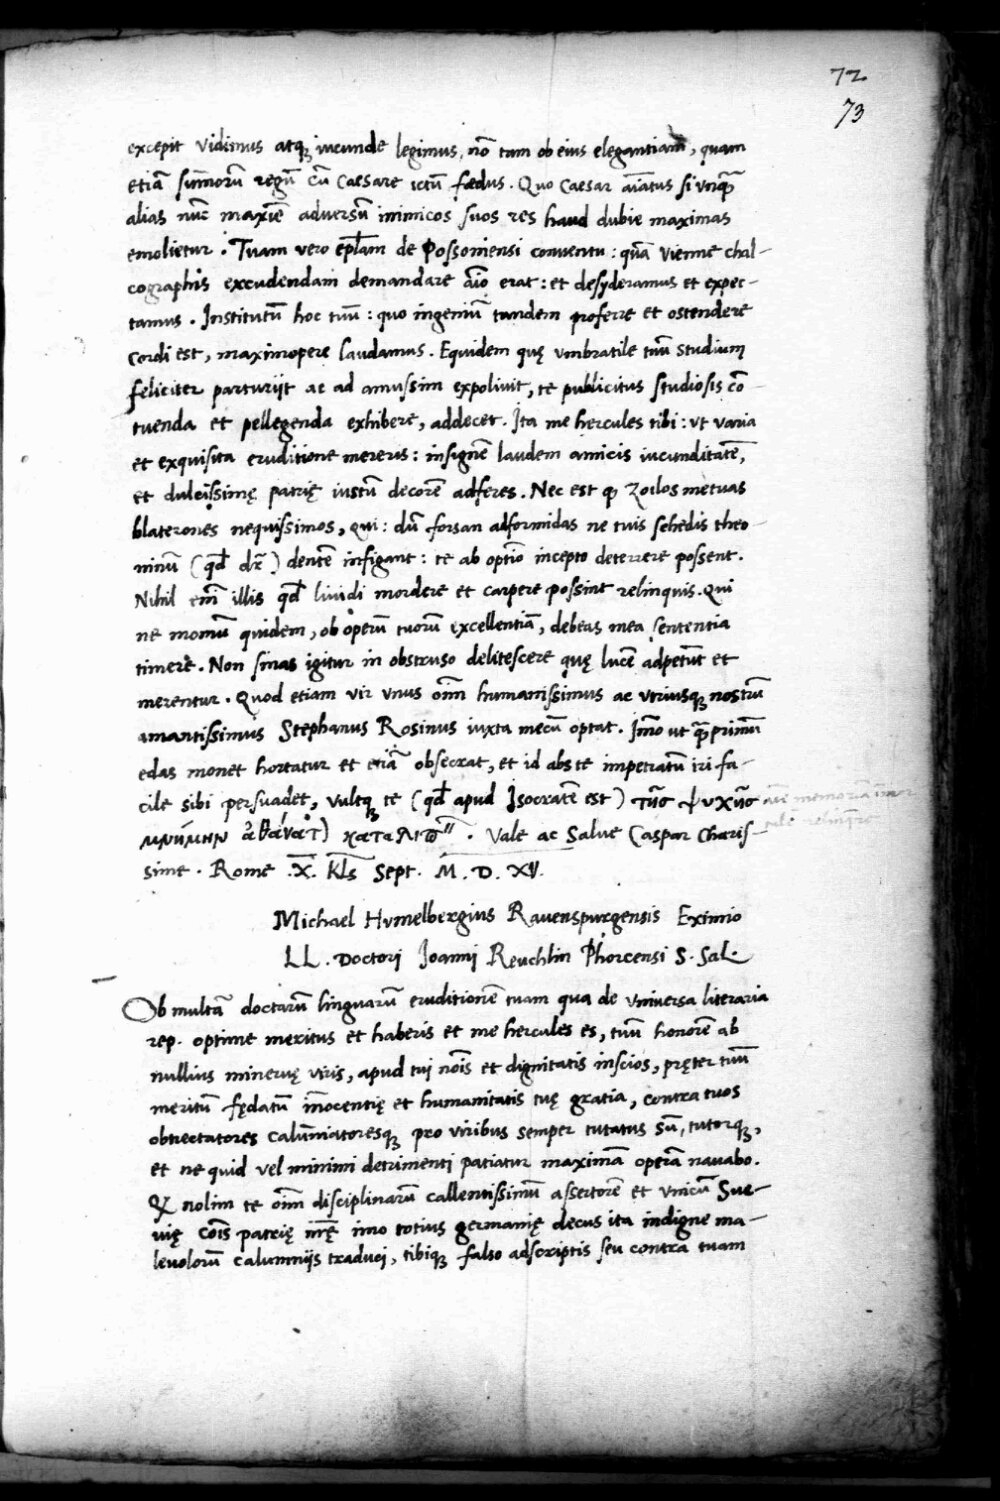 72
73
excepit vidimus atqꝫ iucunde legimus, nō tam ob eius elegantiam, quam
etiā summorū regū cū Caesare ictū fœdus. Quo Caesar aīatus si vnqꝫ
alias nūc maxīe adversū inimicos suos res haud dubie maximas
emolietur. Tuam vero epl̄am de Possoniensi conventu: quā Vienne chal-
cographis excudendam demandare aīo erat: et desyderamus et expec-
tamus. Institutū hoc tuū: quo ingeniū tandem proferre et ostendere
cordi est, maximopere laudamus. Equidem quę vmbratile tuū studium
feliciter parturijt ac ad amussim expolivit, te publicitus studiosis cō-
tuenda et pellegenda exhibere, addecet. Ita me hercules tibi: vt varia
et exquisita eruditione mereris: insignē laudem amicis iucunditatē,
et dulcissimę patrię iustū decorē adferes. Nec est qꝫ Zoilos metuas
blaterones nequissimos, qui: dū forsan adformidas ne tuis schedis theo-
ninū (qd̄ dr̄) dentē infigant: te ab optīo incepto deterrere possent.
Nihil em̄ illis qd̄ lividi mordere et carpere possint relinquis. Qui
ne momū quidem, ob operū tuorū excellentiā, debeas mea sententia
timere. Non sinas igitur in obstruso delitescere quę lucē adpetūt et
merentur. Quod etiam vir vnus oīm humanissimus ac vtriusqꝫ nostrū
amantissimus Stephanus Rosinus iuxta mecū optat. Imo ut qꝫprimū
edas monet hortatur et etiā obsecrat, et id abs te impetratū iri fa-
cile sibi persuadet, vultqꝫ te (qd̄ apud Isocratē est) τῆσ ψυχῆσ
μνήμην ἀθάνατ) καταλιπ. Vale ac Salue Caspar Charis-
sime. Rome .X. Kl̄s Sept. M. D. XV.
Michael Hvmelbergius Ravenspurgensis Eximio
LL. Doctori Joanni Reuchlin Phorcensi S. Sal.
Ob multā doctarū linguarū eruditionē tuam qua de vniversa literaria
rep. optime meritus et haberis et me hercules es, tuū honorē ab
nullius minervę viris, apud tui nōis et dignitatis inscios, pręter tuū
meritū fędatū īnocentię et humanitatis tuę gratia, contra tuos
obtrectatores calūniatoresqꝫ pro viribus semper tutatus sū, tutorqꝫ,
et ne quid vel minimi detrimenti patiatur maximā operā navabo.
nolim te oīm disciplinarū callentissimū assertorē et vnicū Sue-
vię cōis patrię nr̄ę imo totius germanię decus ita indigne ma-
levolorū calumnijs traduci, tibiqꝫ falso adscriptis seu contra tuam